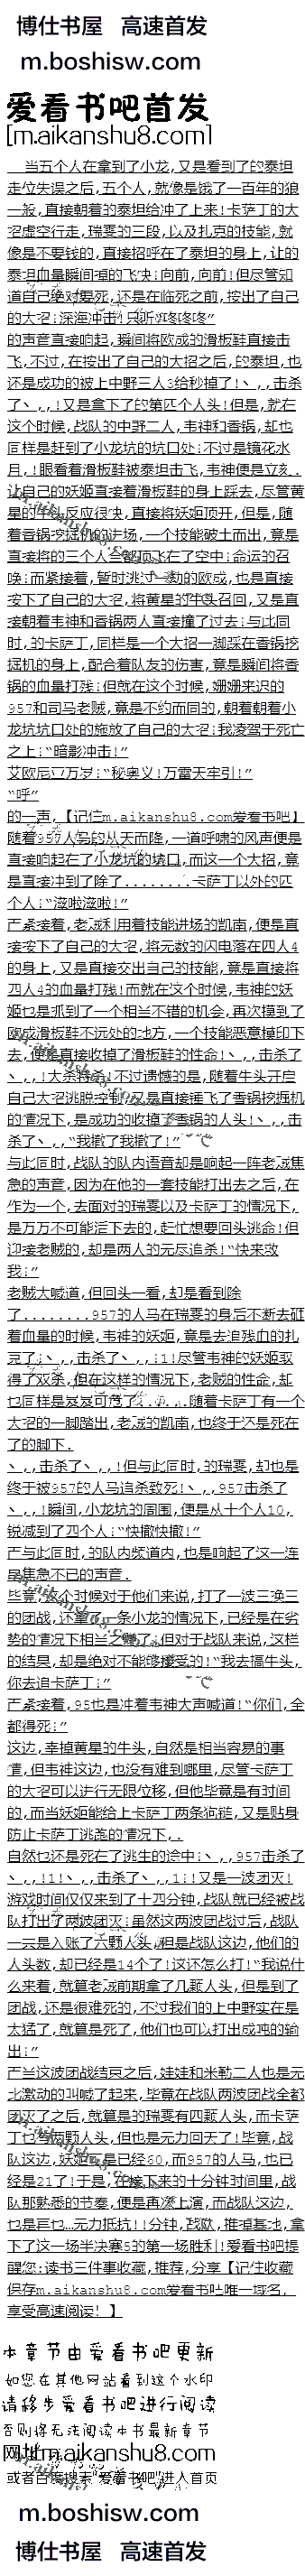 博仕书屋 高速首发
m.boshisw.com
爱看书吧首发
[m.aikanshu8.com]
当五个人在拿到了小龙,又是看到了的泰坦
走位失误之后,五个人,就像是饿了一百年的狼
一般,直接朝着的泰坦给冲了上来!卡萨丁的大
招虚空行走,瑞雯的三段,以及扎克的技能,就
像是不要钱的,直接招呼在了泰坦的身上,让的
泰坦血量瞬间掉的飞快!向前,向前!但尽管知
道自己绝对要死,还是在临死之前,按出了自己
的大招!深海冲击!只听咚咚咚”
的声音直接响起,瞬间将欧成的滑板鞋直接击
飞,不过,在按出了自己的大招之后,的泰坦,也
还是成功的被上中野三人3给秒掉了!丶,,击杀
了丶,,!又是拿下了的第四个人头!但是,就在
这个时候,战队的中野二人,韦神和香锅,却也
同样是赶到了小龙坑的坑口处!不过是镜花水
月,!眼看着滑板鞋被泰坦击飞,韦神便是立刻..
让自己的妖姬直接着滑板鞋的身上踩去,尽管黄
星的牛头反应很快,直接将妖姬顶开,但是,随
着香锅挖掘机进场,一个技能破土而出,竟是
直接将的三个人全部顶飞在了空中!命运的召
唤!而紧接着,暂时逃过一劫的欧成,也是直接
按下了自己的大招,将黄星的牛头召回,又是直
接朝着韦神和香锅两人直接撞了过去!与此同
时,的卡萨丁,同样是一个大招一脚踩在香锅挖
掘机的身上,配合着队友的伤害,竟是瞬间将香
锅的血量打残!但就在这个时候,姗姗来迟的
957和司马老贼,竟是不约而同的,朝着朝着小
龙坑坑口处的施放了自己的大招!我凌驾于死亡
之上!“暗影冲击!”
艾欧尼亚万岁!“秘奥义!万雷天牢引!”
“呼”
的一声,【记住m.aikanshu8.com爱看书吧】
随着957人马的从天而降,一道呼啸的风声便是
直接响起在了小龙坑的坑口,而这一个大招,竟
是直接冲到了除了........卡萨丁以外的四
个人!“滋啦滋啦!”
而紧接着,老贼利用着技能进场的凯南,便是直
接按下了自己的大招,将无数的闪电落在四人4
的身上,又是直接交出自己的技能,竟是直接将
四人4的血量打残!而就在这个时候,韦神的妖
姬也是抓到了一个相当不错的机会,再次摸到了
欧成滑板鞋不远处的地方,一个技能恶意魔印下
去,便是直接收掉了滑板鞋的性命!丶,,击杀了
丶,,!大杀特杀!不过遗憾的是,随着牛头开启
自己大招逃脱生机,又是直接锤飞了香锅挖掘机
的情况下,是成功的收掉了香锅的人头!丶,,击
杀了丶,,“我撤了我撤了!”
与此同时,战队的队内语音却是响起一阵老贼焦
急的声音,因为在他的一套技能打出去之后,在
作为一个,去面对的瑞雯以及卡萨丁的情况下,
是万万不可能活下去的,赶忙想要回头逃命!但
迎接老贼的,却是两人的无尽追杀!“快来救
我!”
老贼大喊道,但回头一看,却是看到除
了........957的人马在瑞雯的身后不断去砸
着血量的时候,韦神的妖姬,竟是去追残血的扎
克了!丶,,击杀了丶,,!1!尽管韦神的妖姬取
得了双杀,但在这样的情况下,老贼的性命,却
也同样是岌岌可危了......随着卡萨丁有一个
大招的一脚踏出,老贼的凯南,也终于还是死在
了的脚下.
丶,,击杀了丶,,!但与此同时,的瑞雯,却也是
终于被957的人马追杀致死!丶,,957击杀了
丶,,!瞬间,小龙坑的周围,便是从十个人10,
锐减到了四个人!“快撤快撤!”
而与此同时,的队内频道内,也是响起了这一连
串焦急不已的声音.
毕竟,这个时候对于他们来说,打了一波三换三
的团战,还拿了一条小龙的情况下,已经是在劣
势的情况下相当之赚了!但对于战队来说,这样
的结果,却是绝对不能够接受的!“我去搞牛头,
你去追卡萨丁!”
而紧接着,95也是冲着韦神大声喊道!“你们,全
都得死!”
这边,宰掉黄星的牛头,自然是相当容易的事
情,但韦神这边,也没有难到哪里,尽管卡萨丁
的大招可以进行无限位移,但他毕竟是有时间
的,而当妖姬能给上卡萨丁两条狗链,又是贴身
防止卡萨丁逃跑的情况下,.
自然也还是死在了逃生的途中!丶,,957击杀了
丶,,!1!丶,,击杀了丶,,1!!又是一波团灭!
游戏时间仅仅来到了十四分钟,战队就已经被战
队打出了两波团灭!虽然这两波团战过后,战队
一共是入账了六颗人头,但是战队这边,他们的
人头数,却已经是14个了!这还怎么打!“我说什
么来着,就算老贼前期拿了几颗人头,但是到了
团战,还是很难死的,不过我们的上中野实在是
太猛了,就算是死了,他们也可以打出成吨的输
出!”
而当这波团战结束之后,娃娃和米勒二人也是无
比激动的叫喊了起来,毕竟在战队两波团战全都
团灭了之后,就算是的瑞雯有四颗人头,而卡萨
丁也有两颗人头,但也是无力回天了!毕竟,战
队这边,妖姬都是已经60,而957的人马,也已
经是21了!于是,在接下来的十分钟时间里,战
队那熟悉的节奏,便是再次上演,而战队这边,
也是再也…无力抵抗!!分钟,战队,推掉基地,拿
下了这一场半决赛5的第一场胜利!爱看书吧提
醒您:读书三件事收藏,推荐,分享【记住收藏
保存m.aikanshu8.com爱看书吧唯一域名,
享受高速阅读!】
本章节由爱看书吧更新
如您在其他网站看到这个水印
请移步爱看书吧进行阅读
否则将无法阅读本书最新章节
网址m.aikanshu8.com
或者百度搜索“爱看书吧”进入首页
m.boshisw.com
博仕书屋 高速首发